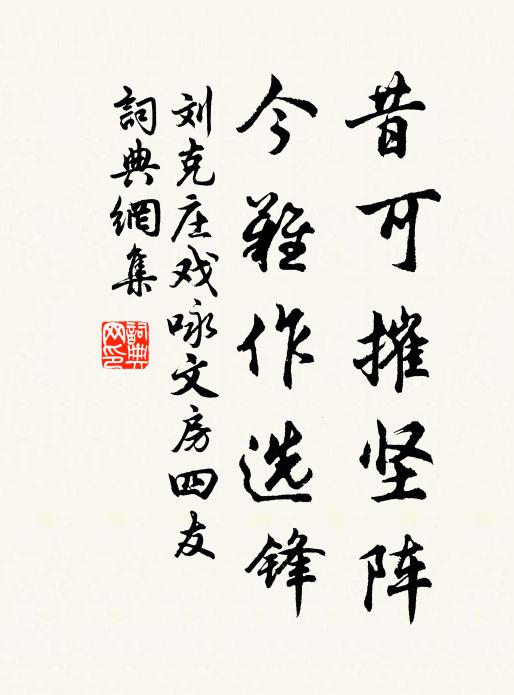 昔可摧坚阵
今难作选锋
刘克庄戏咏文房四友
詞典網集
詞典網印